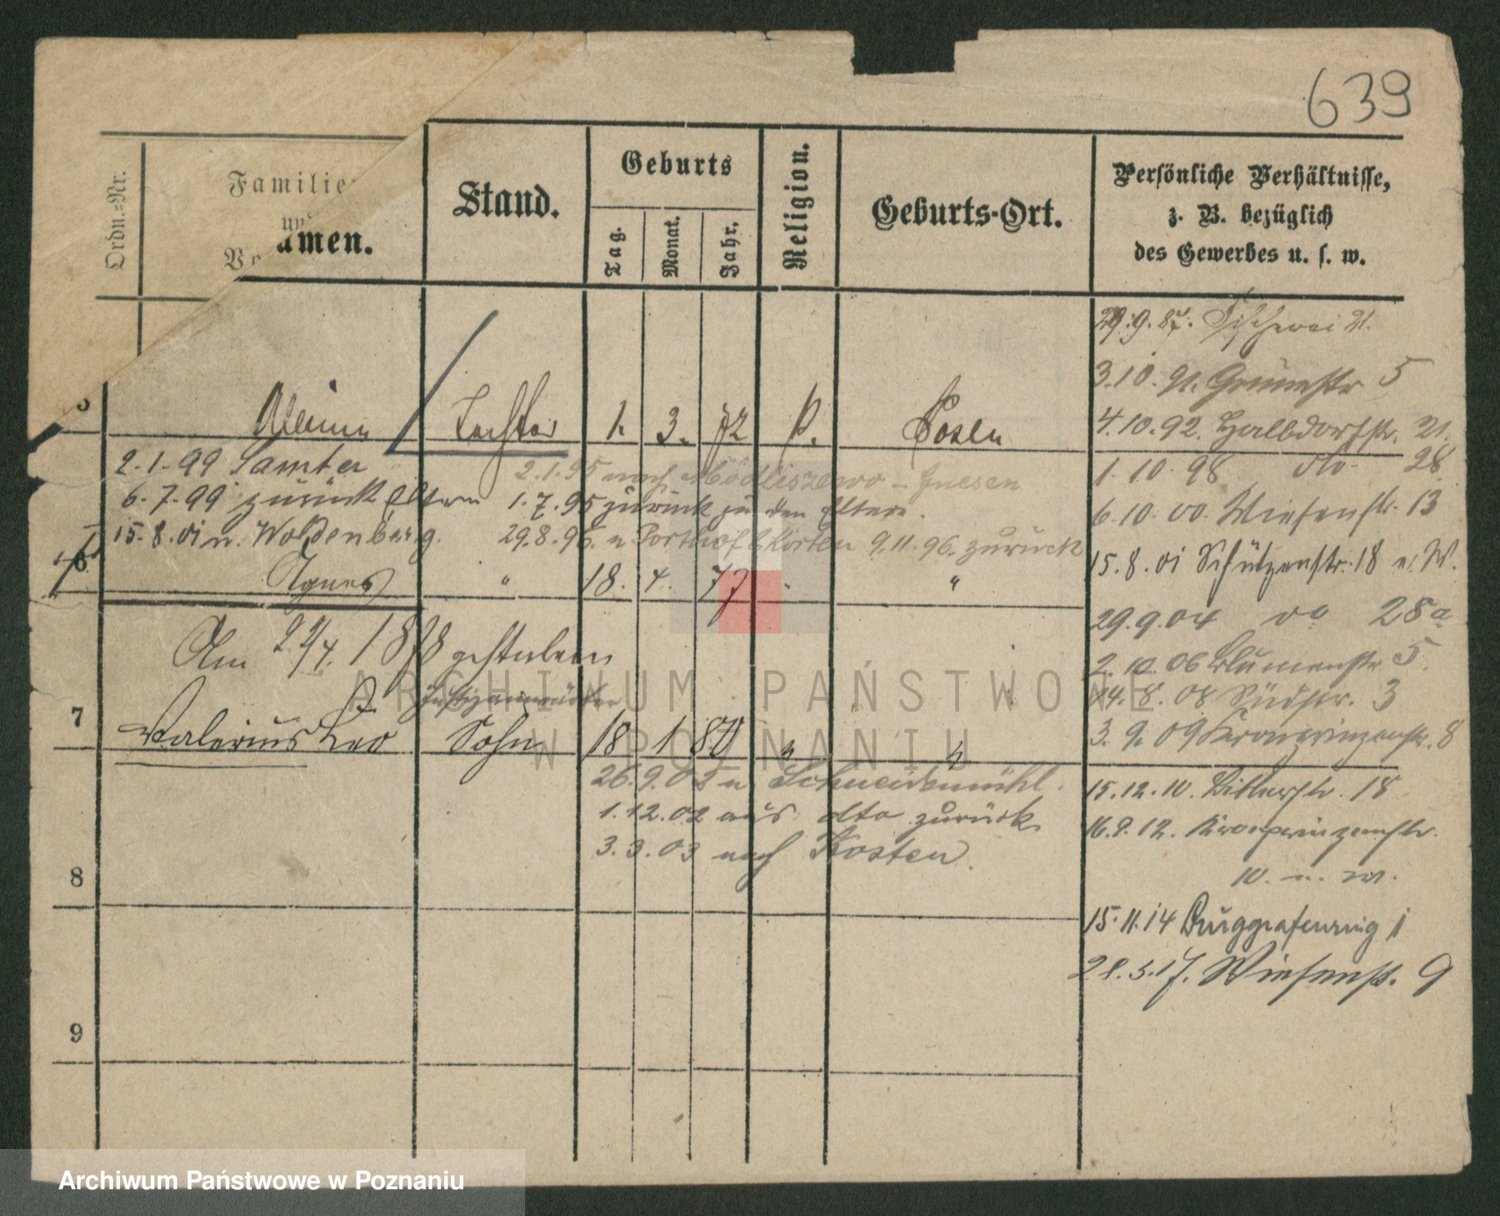 639
Ordn.-Nr.
Familien
und
Vo amen.
Stand.
Geburts
Tag.
Monat.
Jahr.
Religion.
Geburts-Ort.
Persönliche Verhältnisse,
z. B. bezüglich
des Gewerbes u. s. w.
29.9.87. 21.
3.10.91. Grünestr 5
5 Tochter 1. 3. 72 k. Posen
4.10.92. Halbdorfstr. 21.
2.1.99 Samter
2.1.95 nach Modliszewo - Gnesen
1.10.98 do 28
6.7.99 zurück Eltern
1.7.95 zurück zu den Eltern.
6.10.00. Wiesenstr. 13
15.8.01 n. Woldenberg.
29.8.96. n Kosten 9.11.96. zurück
15.8.01 Schützenstr. 18 n. W.
6 Agnes " 18. 4. 77 "
29.9.04 do 28a
Am 29/4. 1878 gestorben
2.10.06 Blumenstr. 5.
14.8.08 Südstr. 3
7 Valerius Leo Sohn 18 1 80 " "
3.9.09 Kronprinzenstr. 8
26.9.02 n Schneidemühl.
15.12.10. Bitterstr. 18
1.12.02 aus dto zurück
16.9.12. Kronprinzenstr.
3.3.03 nach Kosten.
8
10. n. W.
15.11.14 Burggrafenring 1
28.5.17. Wiesenstr. 9
9
ARCHIWUM PAŃSTWOWE
W POZNANIU
Archiwum Państwowe w Poznaniu